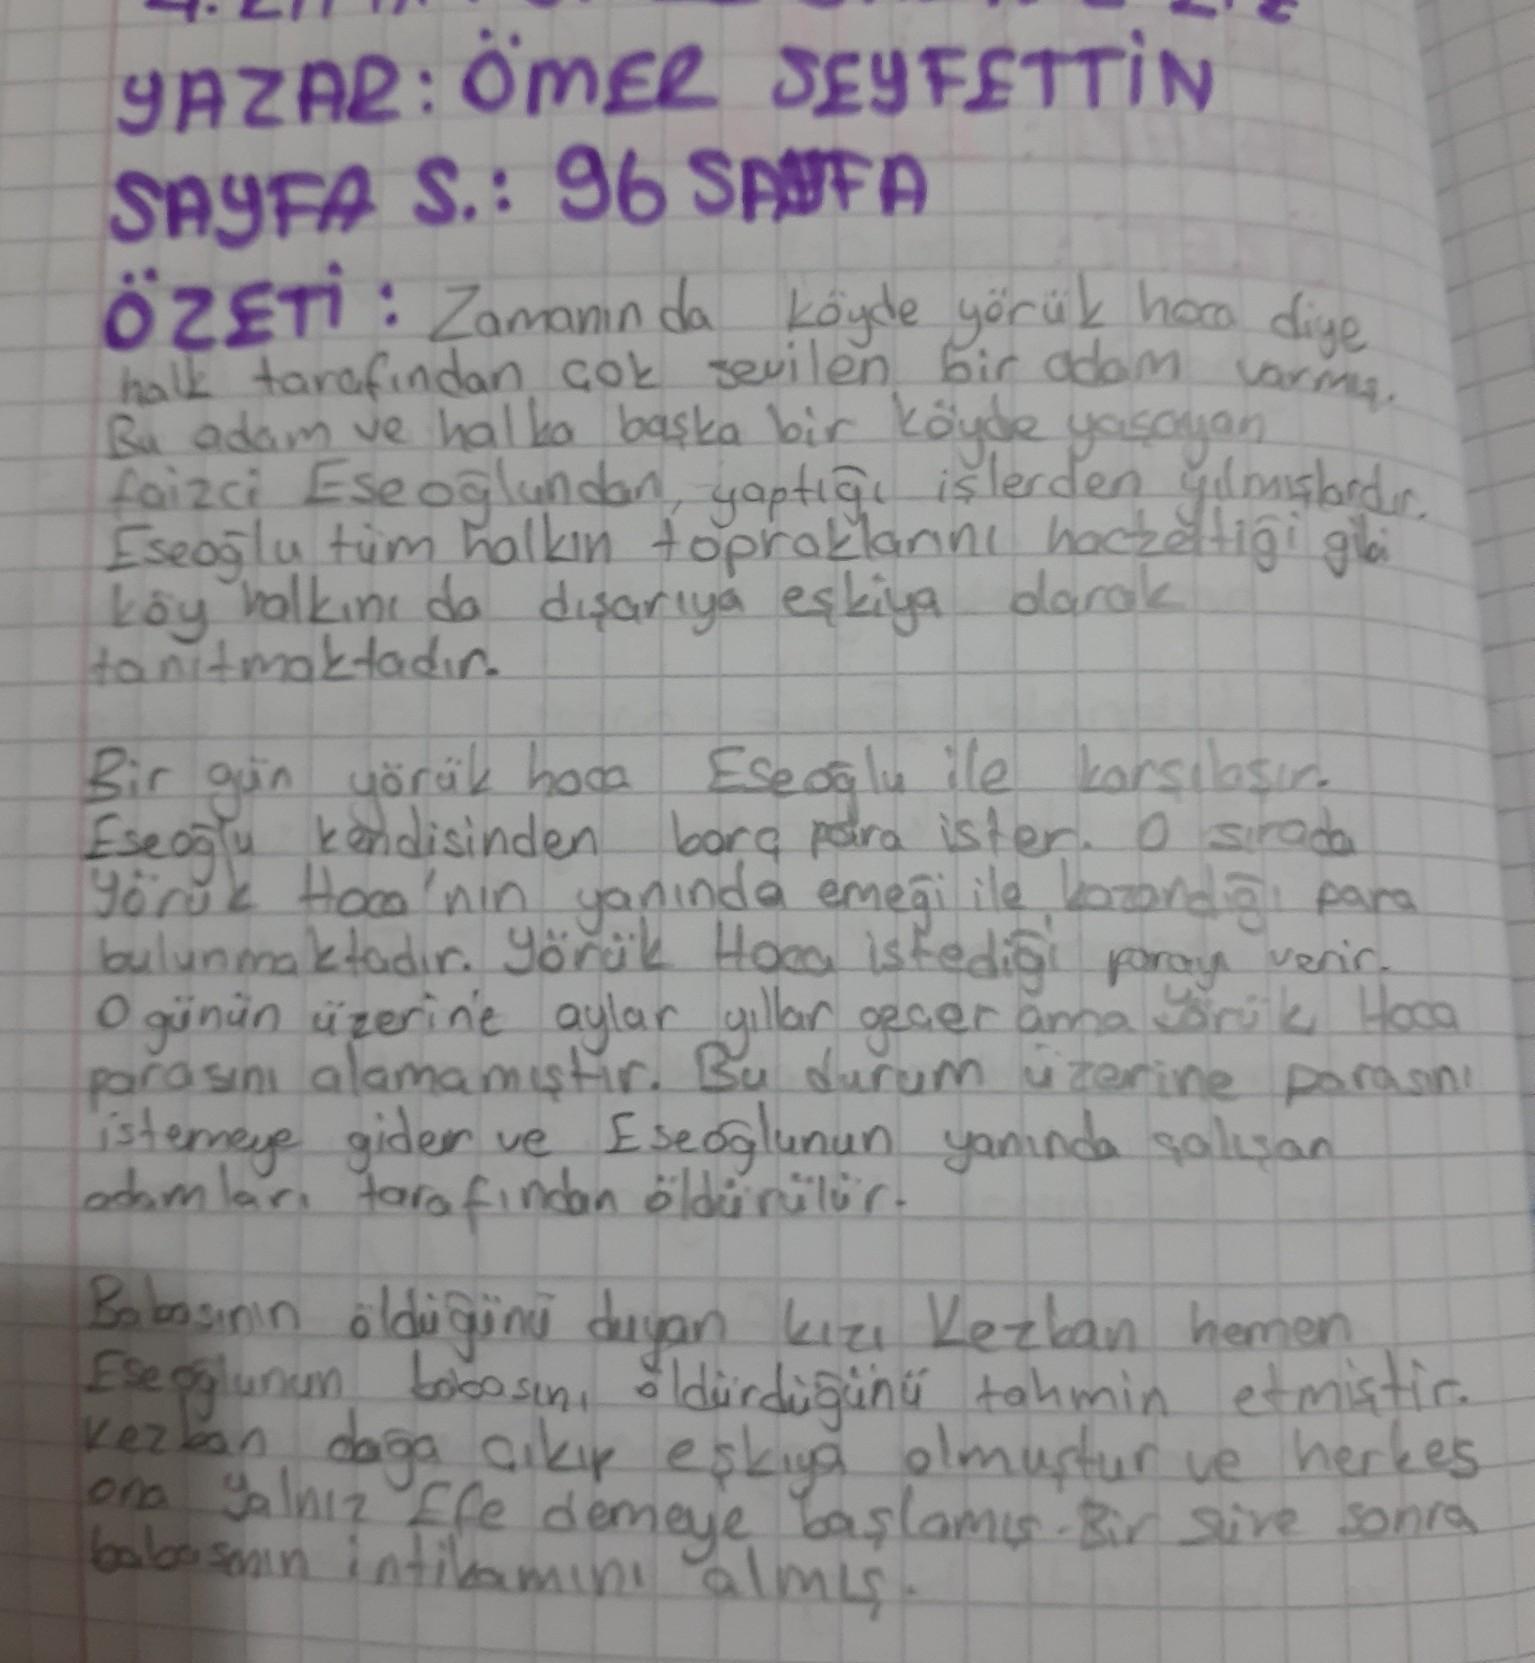 YAZAR: ÖMER SEYFETTİN
SAYFA S.: 96 SAYFA
ÖZETİ: Zamanında köyde yörük hoca diye
halk tarafından çok sevilen bir adam varmış.
Bu adam ve halka başka bir köyde yaşayan
faizci Eseoğlundan, yaptığı işlerden yılmışlardır.
Eseoğlu tüm halkın topraklarını haczettiği gibi
köy halkını da dışarıya eşkiya olarak
tanıtmaktadır.
Bir gün yörük hoca Eseoğlu ile karşılaşır.
Eseoğlu kendisinden borç para ister. O sırada
Yörük Hoca'nın yanında emeği ile kazandığı para
bulunmaktadır. Yörük Hoca istediği parayı verir.
O günün üzerine aylar yıllar geçer ama Yörük Hoca
parasını alamamıştır. Bu durum üzerine parasını
istemeye gider ve Eseoğlunun yanında çalışan
adamları tarafından öldürülür.
Babasının öldüğünü duyan kızı Kezban hemen
Eseoğlunun babasını öldürdüğünü tahmin etmiştir.
Kezban dağa çıkıp eşkıya olmuştur ve herkes
ona Yalnız Efe demeye başlamış. Bir süre sonra
babasının intikamını almış.